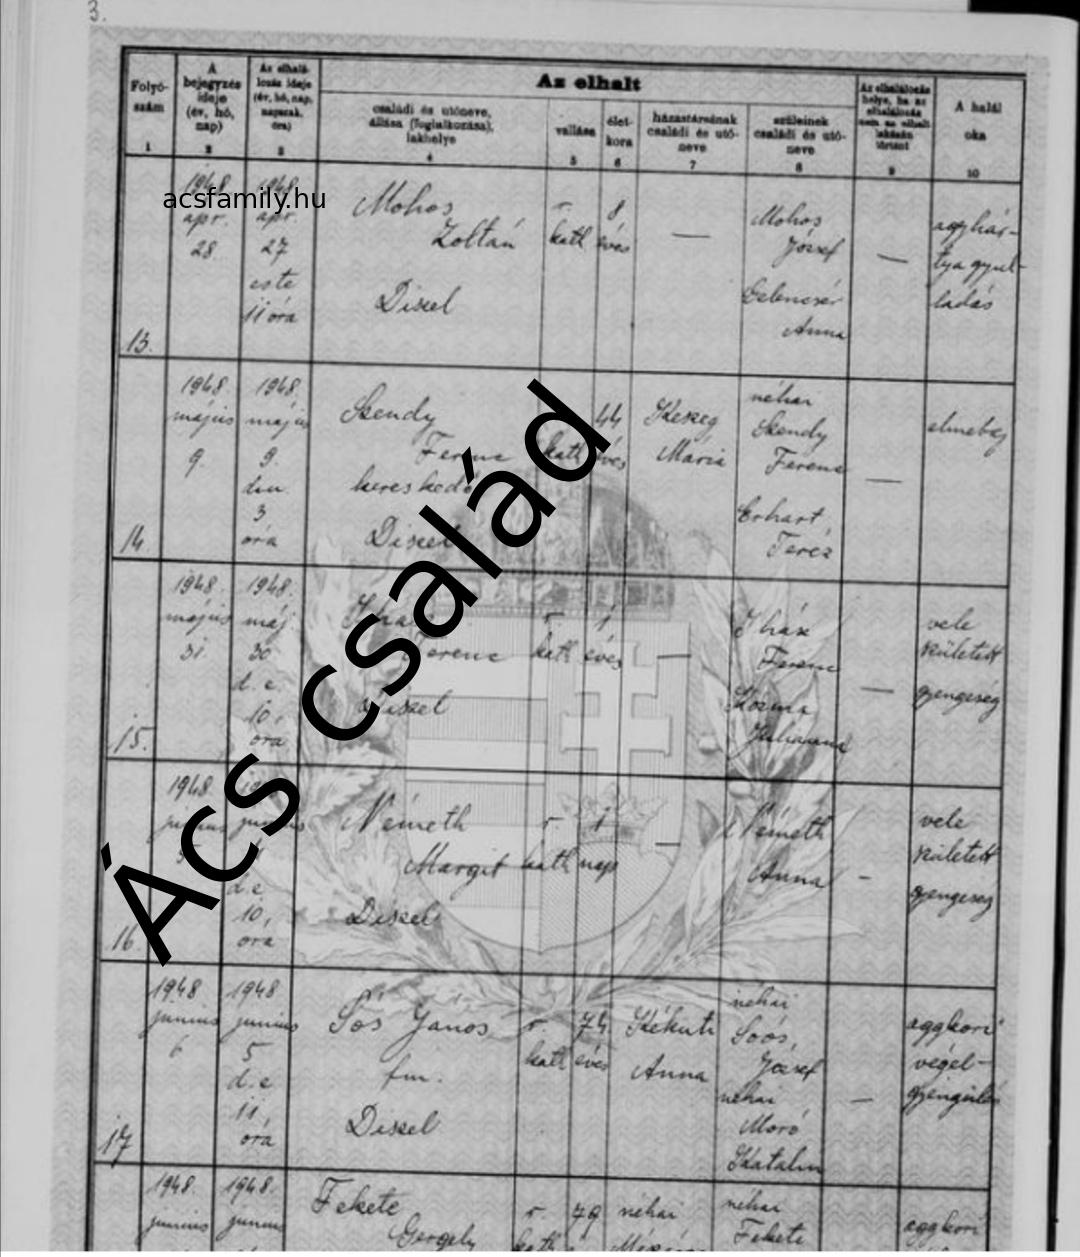 3.
Folyó-
szám
1
A
bejegyzés
ideje
(év, hó,
nap)
2
Az elhalá-
lozás ideje
(év, hó, nap,
napszak,
óra)
3
Az elhalt
családi és utóneve,
állása (foglalkozása),
lakhelye
4
vallása
5
élet-
kora
6
házastársának
családi és utó-
neve
7
szüleinek
családi és utó-
neve
8
Az elhalálozás
helye, ha az
elhalálozás
nem az elhalt
lakásán
történt
9
A halál
oka
10
acsfamily.hu
13.
1948
apr.
28.
1948
apr.
27
este
11 óra
Mohos
Zoltán
Diszel
r.
kath
8
éves
—
Mohos
József
Gelencsér
Anna
—
agyhár-
tya gyul-
ladás
14
1948.
május
9.
1948.
május
9.
du.
3
óra
Szendy
Ferenc
kereskedő
Diszel
kath
44
éves
Keszeg
Mária
néhai
Szendy
Ferenc
Erhart
Teréz
—
elmebaj
15.
1948.
május
31
1948.
máj.
30
d. e.
10,
óra
Ferenc
Diszel
r.
kath
1
éves
—
Ihász
Ferenc
Kozma
Julianna
—
vele
született
gyengeség
16.
1948.
június
június
d.e
10,
óra
Németh
Margit
Diszel
r.
kath
1
nap
—
Németh
Anna
-
vele
született
gyengeség
17
1948
június
6
1948
június
5
d.e
11,
óra
Sós János
fm.
Diszel
r.
kath
74
éves
Kékuti
Anna
néhai
Soós,
József
néhai
Moró
Katalin
—
aggkori
végel-
gyengülés
1948.
június
1948.
június
Fekete
Gergely
r.
kath
79
néhai
néhai
Fekete
aggkori
Ács család